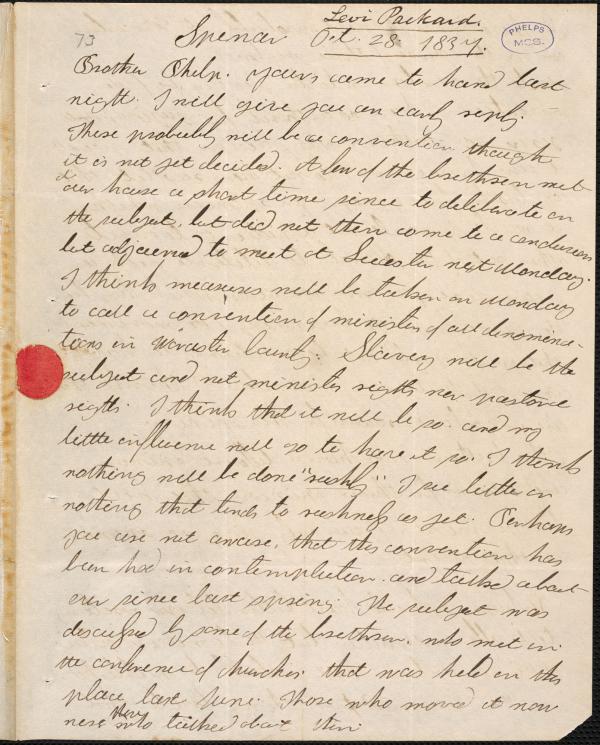 Levi Packard.
73
PHELPS
MCS.
Spencer Oct. 28. 1837.
Brother Phelps. yours came to hand last
night. I will give you an early reply.
There probably will be a convention though
it is not yet decided. A few of the brethren met
at our house a short time since to deliberate on
the subject, but did not then come to a conclusion
but adjourned to meet at Leicester next Monday.
I think measures will be taken on Monday
to call a convention of ministers of all denomina-
tions in Worcester County. Slavery will be the
subject and not ministers rights nor pastoral
rights. I think that it will be so. and my
little influence will go to have it so. I think
nothing will be done "rashly" I see little or
nothing that tends to rashness as yet. Perhaps
you are not aware, that this convention has
been had in contemplation. and talked about
ever since last spring. The subject was
discussed by some of the brethren. who met in
the conference of churches. that was held in this
place last June. Those who moved it now
were them who talked about it then.